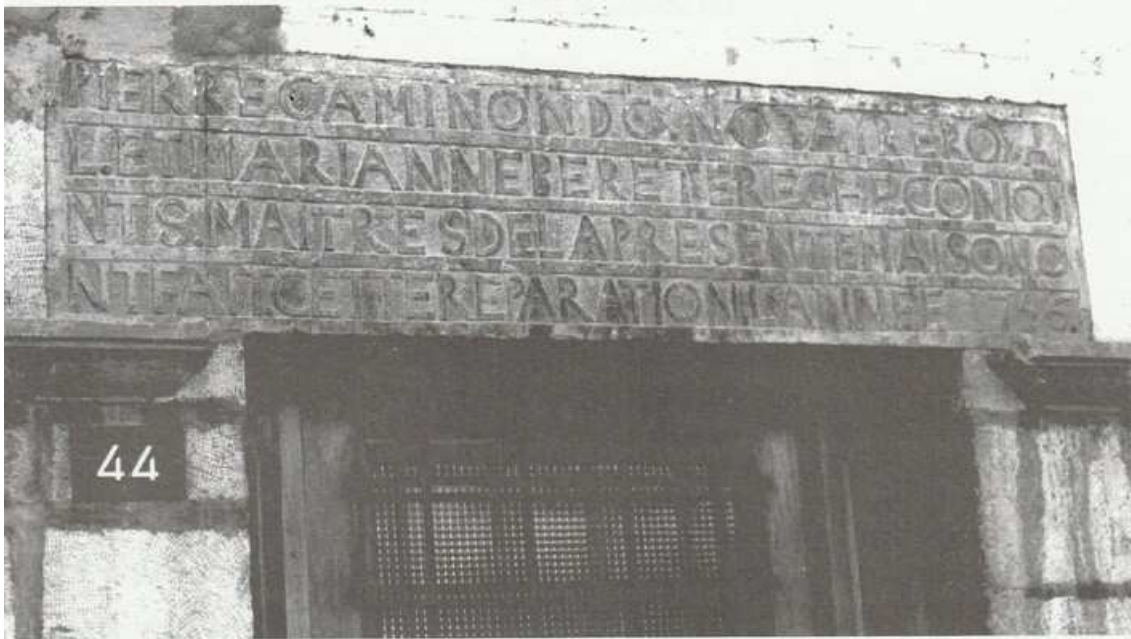 PIERRE CAMINONDO. NOTAIRE ROYA
L. ET MARIANNE BERETERECHE. CONIOI
NTS. MAITRES DE LA PRESENTE MAISON O
NT FAIT CETTE REPARATION L ANNEE
44